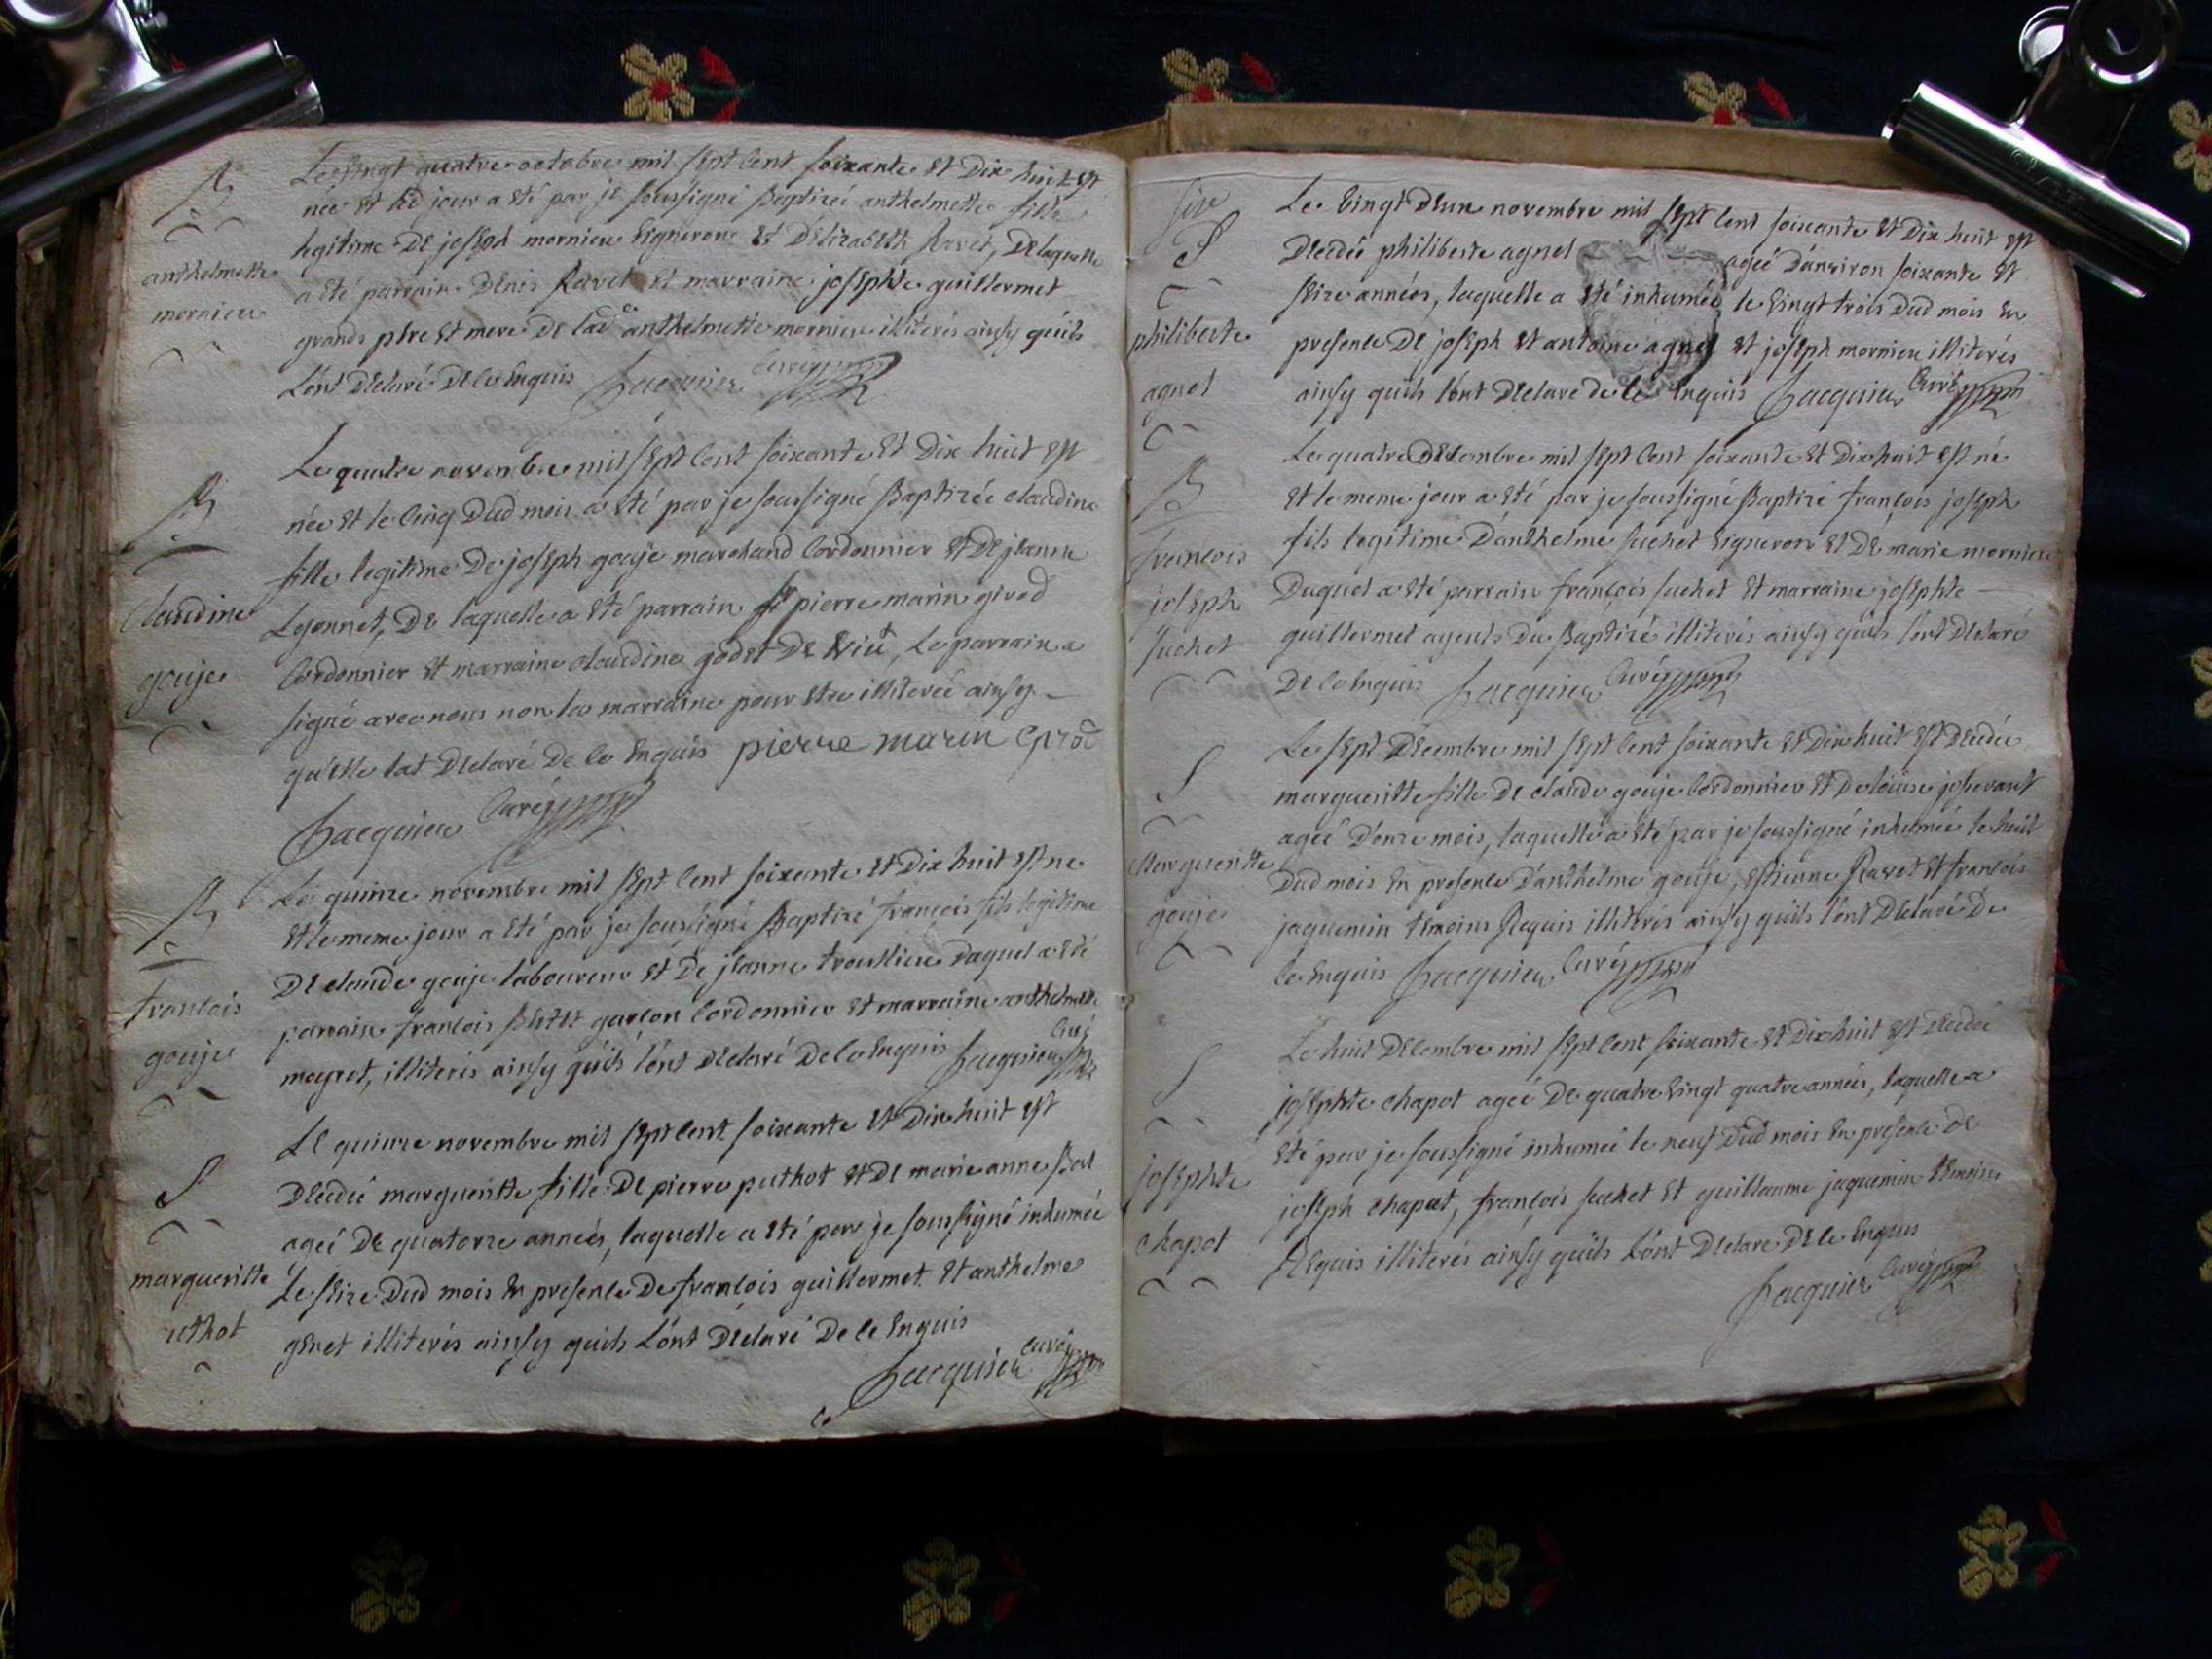 B
anthelmette
mornieu
Le vingt quatre octobre mil sept cent soixante et dix huit est
née et led jour a eté par je soussigné Baptizée anthelmette fille
legitime de joseph mornieu vigneron et d'elizabeth Ravet, de laquelle
a eté parrain denis Ravet et marraine josephte guillermet
grands pere et mere de lad anthelmette mornieu illiterés ainsy qu'ils
l'ont declaré de ce enquis Jacquier curé
B
claudine
gouje
Le quatre novembre mil sept cent soixante et dix huit est
née et le cinq dud mois a eté par je soussigné Baptizée claudine
fille legitime de joseph gouje marchand cordonnier et de jeanne
Lyonnet, de laquelle a eté parrain sr pierre marin girod
cordonnier et marraine claudine godet de, Le parrain a
signé avec nous non la marraine pour etre illiterée ainsy
qu'elle l'at declaré de ce enquis pierre marin
Jacquier curé
B
francois
gouje
Le quinze novembre mil sept cent soixante et dix huit est né
et le meme jour a eté par je soussigné Baptizé françois fils legitime
de claude gouje laboureur et de jeanne trouillieu duquel a eté
parrain francois Bertet garcon cordonnier et marraine anthelmette
meyret, illiterés ainsy qu'ils l'ont declaré de ce enquis Jacquier curé
S
margueritte
uthot
Le quinze novembre mil sept cent soixante et dix huit est
decedée margueritte fille de pierre puthot et de marie anne Bal
ageé de quatorze années, laquelle a eté par je soussigné inhumée
Le seize dud mois en presence de francois guillermet et anthelme
genet illiterés ainsy quils l'ont declaré de ce enquis
Jacquier curé
S
philiberte
agnel
Le vingt d'eux novembre mil sept cent soixante et dix huit est
decedée philiberte agnel ageé d'environ soixante et
seize années, laquelle a eté inhumée le vingt trois dud mois en
presence de joseph et antoine agnel et joseph mornieu illiterés
ainsy quils l'ont declaré de ce enquis Jacquier curé
B
francois
joseph
suchet
Le quatre decembre mil sept cent soixante et dix huit est né
et le meme jour a eté par je soussigné Baptizé françois joseph
fils legitime d'anthelme suchet vigneron et de marie mornieu
Duquel a eté parrain françois suchet et marraine josephte
guillermet ayeuls du Baptizé illiterés ainsy quils l'ont declaré
de ce enquis Jacquier curé
S
Margueritte
gouje
Le sept decembre mil sept cent soixante et dix huit est decedée
margueritte fille de claude gouje cordonnier et de loüise
ageé d'onze mois, laquelle a eté par je soussigné inhumée le huit
dud mois en presence d'anthelme gouje, estienne Ravet et francois
jaquemin temoins Requis illiterés ainsy quils l'ont declaré de
ce enquis Jacquier curé
S
josephte
chapot
Le huit decembre mil sept cent soixante et dix huit est decedée
josephte chapot ageé de quatre vingt quatre années, laquelle a
eté par je soussigné inhumée le neuf dud mois en presence de
joseph chapot, françois suchet et guillaume jaquemin temoins
Requis illiterés ainsy quils l'ont declaré de ce enquis
Jacquier curé